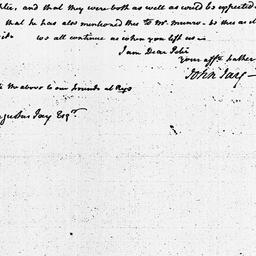 and that they were both as well as would be expected
that he has also mentioned this to Mr. Munro
we all continue as when you left us—
I am Dear
Your affte. father
John Jay—
the above to our friends at Rye
Jay Esqr.